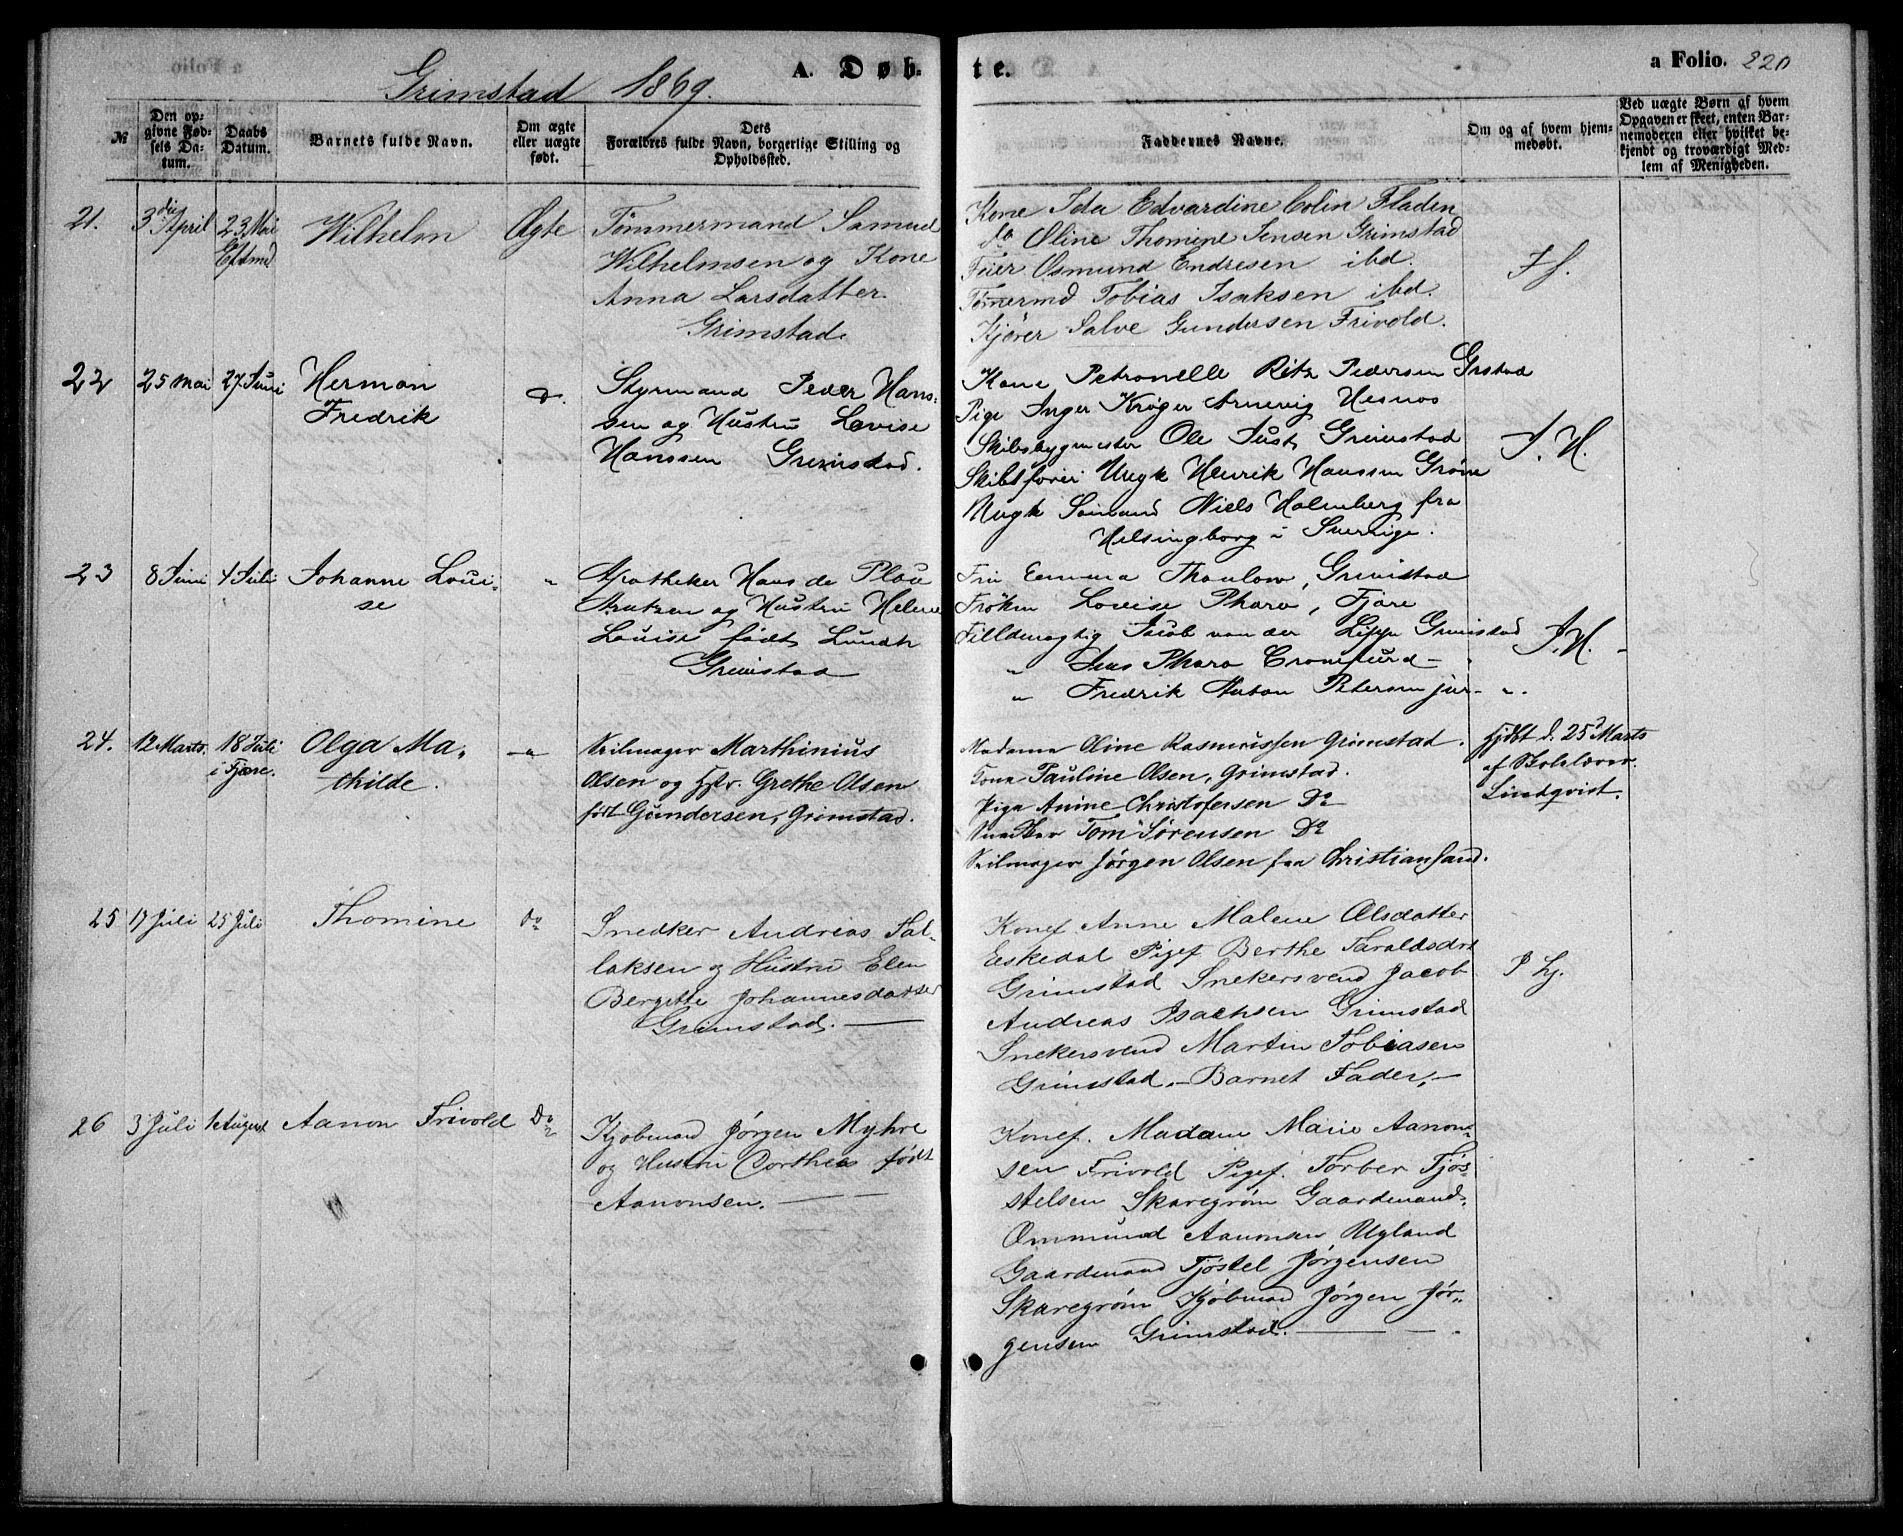 Grimstad 1869.
A. Døbte.
a Folio. 220
№
Den opgivne Fødsels Datum.
Daabs Datum.
Barnets fulde Navn.
Om ægte eller uægte født.
Dets Forældres fulde Navn, borgerlige Stilling og Opholdssted.
Faddernes Navne.
Om og af hvem hjemmedøbt.
Ved uægte Børn af hvem Opgaven er skeet, enten Barnemoderen eller hvilket bekjendt og troværdigt Medlem af Menigheden.
21. 3die April 23 Mai Eftmd Wilhelm Ægte
Tömmermand Samuel
Wilhelmsen og Kone
Anna Larsdatter.
Grimstad
Kone Ida Edvardine Colin Fladen
do Oline Thomine Jensen Grimstad
Osmund Endresen ibd.
Tømermd Tobias Isaksen ibd.
Kjører Salve Gundersen Frivold.
22 25 Mai 27 Juni Herman
Fredrik
Styrmand Peder Hans-
sen og Hustru Lovise
Hanssen Grimstad.
Kone Petronelle Ritz Pedersen Grstad
Pige Inger Krøger Arnevig Hesnæs
Skibsbygmester Ole Just Grimstad
Skibsfører Ungk Henrik Hanssen Grøm
Ungk Sømand Niels Holmberg fra
Helsingborg i Sverrige.
I. H.
23 8 Juni 4 Juli Johanne Loui-
se "
Apotheker Hans de Plou
Arntzen og Hustru Helene
Louise født Lundh
Grimstad
Fru Emma Thaulow, Grimstad
Frøken Lovise Pharo, Fjære
Fuldmægtig Jacob von der Lippe Grimstad
" Jens Pharo Cronfurd - "
" Fredrik Anton Petersen jur - ".
I. H. -
24. 12 Marts. 18 Juli i Fjære. Olga Ma-
thilde. -"-
Seilmager Marthinius
Olsen og Hstr. Grethe Olsen
født Gundersen, Grimstad.
Madame Oline Rasmussen Grimstad.
Kone Pauline Olsen, Grimstad.
Pige Anine Christofersen Do
Snedker Tom Sørensen Do
Seilmager Jørgen Olsen fra Christiansand.
Hjdbt d. 25 Marts
af Skolelærer
Lindqvist.
25 17 Juli 25 Juli Thomine do
Snedker Andreas Tal-
laksen og Hustru Elen
Bergitte Johannesdatter
Grimstad. —
Konef. Anne Malene Olsdatter
Eskedal Pigef Berthe Taraldsdt
Grimstad Snekersvend Jacob
Andreas Isachsen Grimstad
Snekersvend Martin Tobiasen
Grimstad. - Barnet Fader. -
26 3 Juli 1 August Aanon Frivold Do
Kjøbmand Jørgen Myhre
og Hustru Dorthea født
Aanonsen. — —
Konef. Madam Marie Aanon-
sen Frivold Pigef. Torber Tjøs-
stelsen Skaregrøm Gaardmand
Ommund Aanonsen Ugland
Gaardmand Tjøstel Jørgensen
Skaregrøm Kjøbmand Jørgen Jør-
gensen Grimstad. —